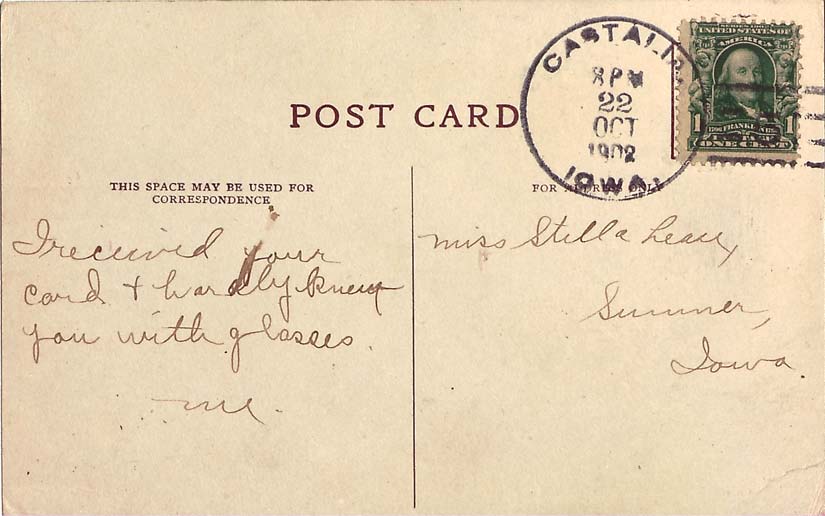 POST CARD
CASTALIA
8 PM
22
OCT
1902
IOWA.
SERIES 1902
UNITED STATES OF
AMERICA
1 FRANKLIN 1
POSTAGE
ONE CENT
THIS SPACE MAY BE USED FOR
CORRESPONDENCE
FOR ADDRESS ONLY
I received your
card & hardly knew
you with glasses.
me.
Miss Stella
Sumner,
Iowa.